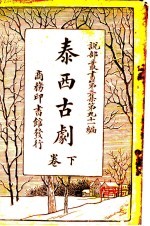 説部叢書第三集第九十一編
泰西古劇
卷下
商務印書館發行